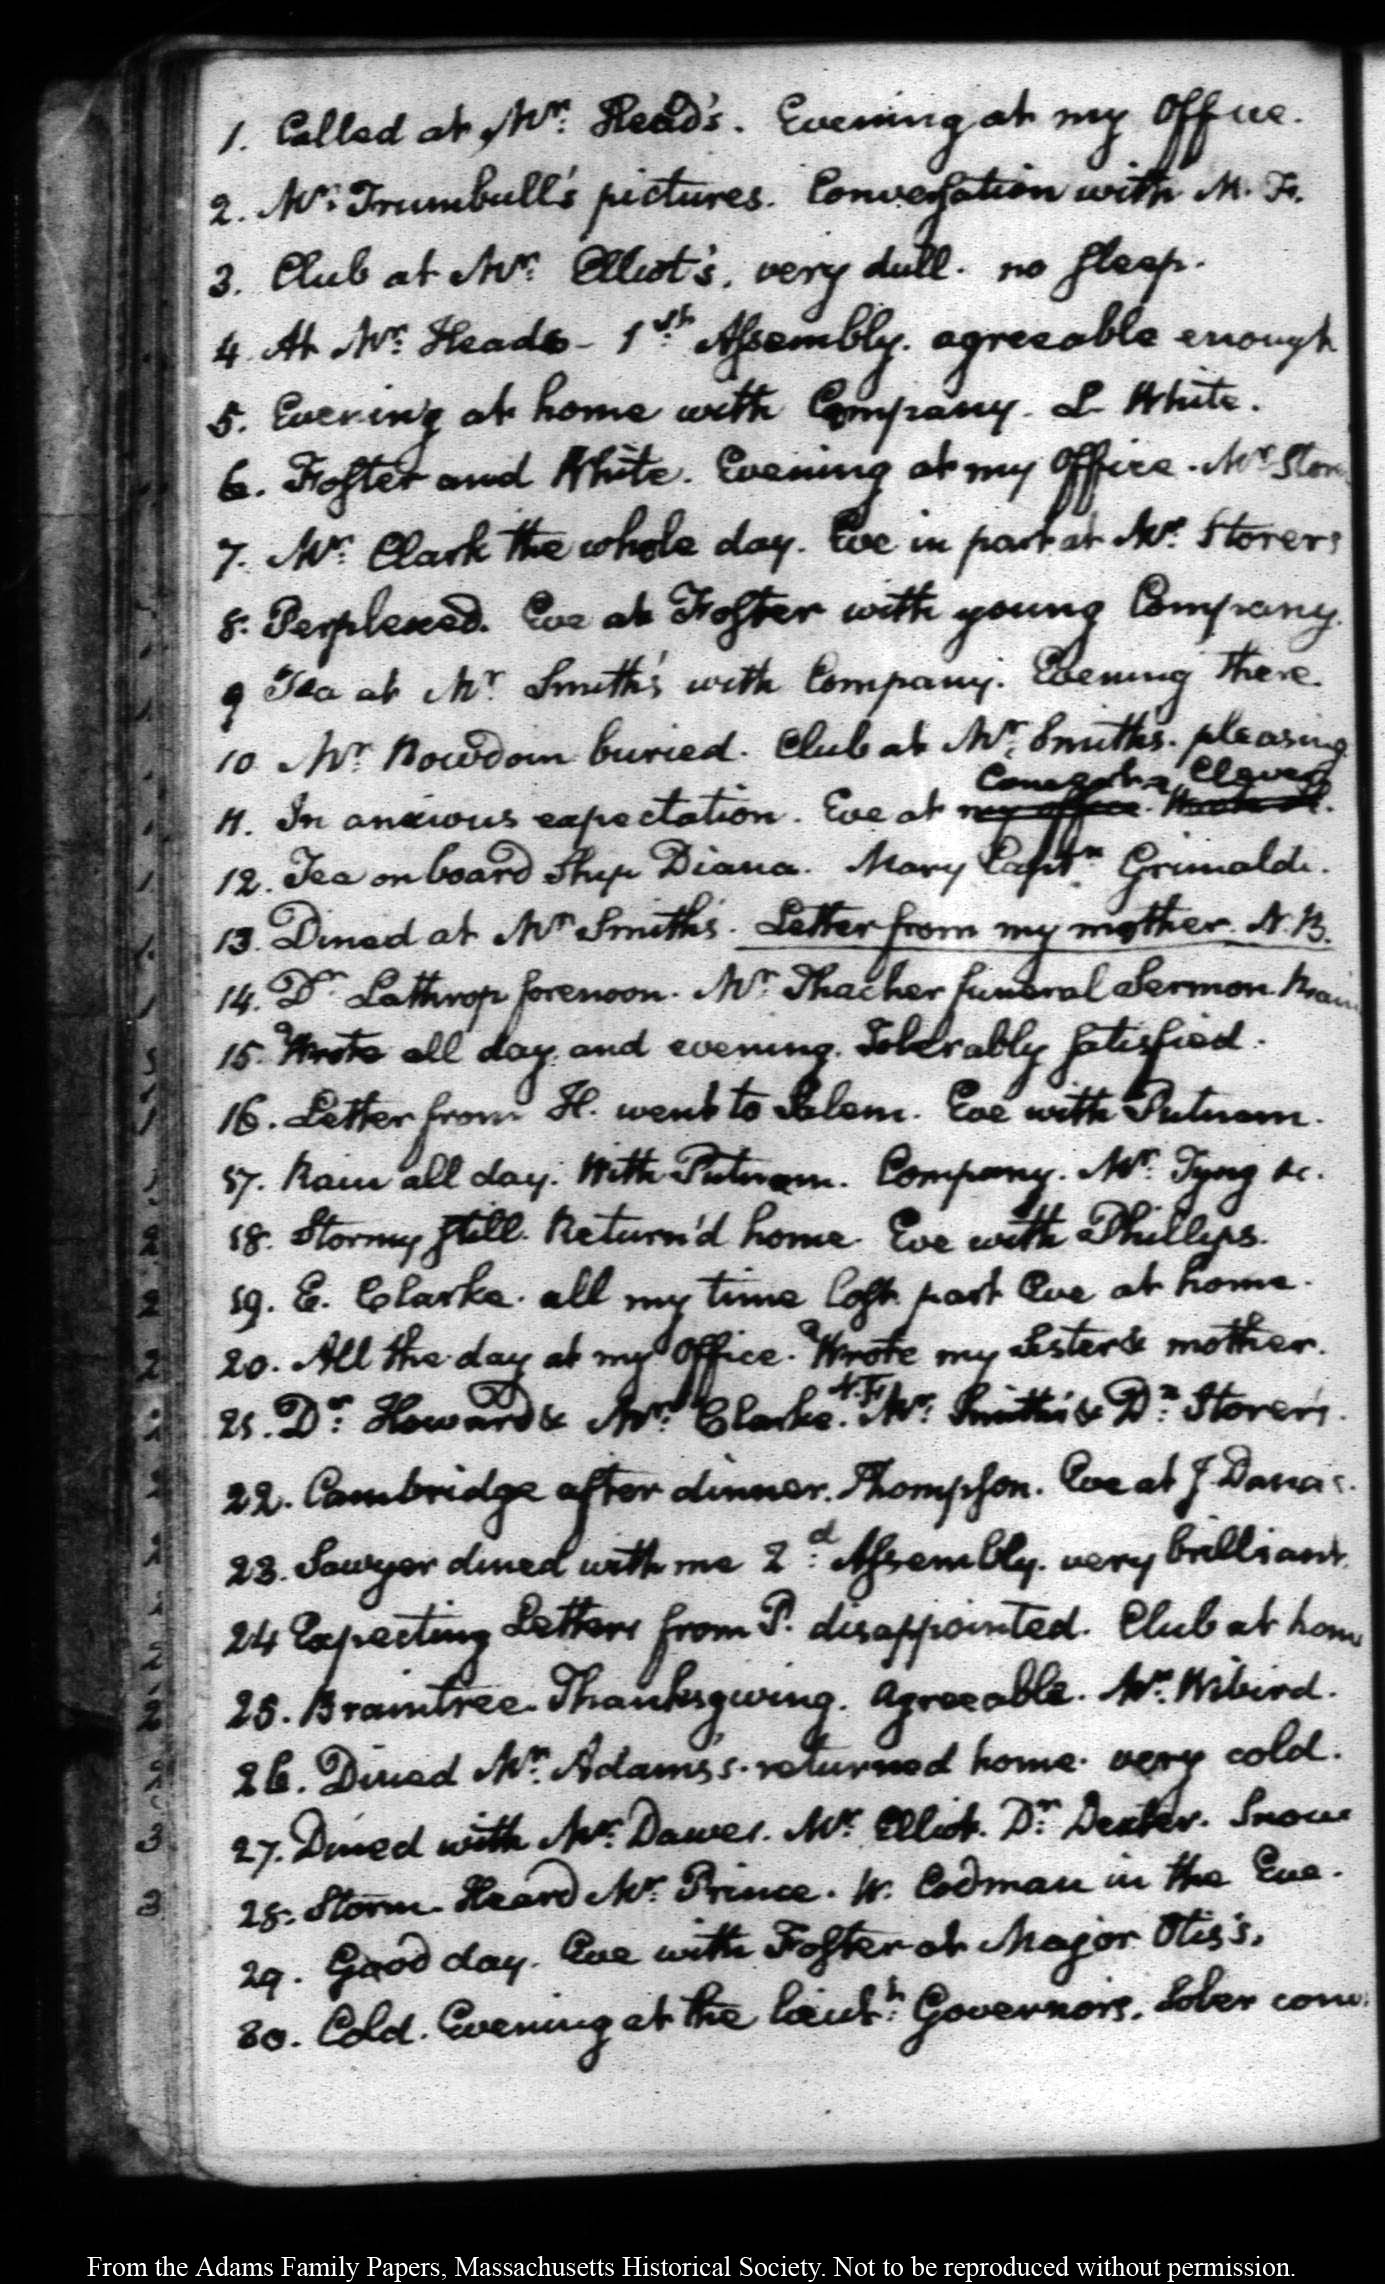 1. Called at Mr. Head's. Evening at my Office.
2. Mr. Trumbull's pictures. Conversation with M. Fr.
3. Club at Mr. Elliot's, very dull. no sleep.
4. At Mr. Heads - 1st. Assembly. agreeable enough
5. Evening at home with Company. L. White.
6. Foster and White. Evening at my Office. Mr. Stor
7. Mr. Clark the whole day. Eve in part at Mr. Storers
8. Perplexed. Eve at Foster with young Company.
9 Tea at Mr. Smith's with Company. Evening there.
10 Mr. Bowdoin buried. Club at Mr. Smith's. pleasing
11. In anxious expectation. Eve at my office.
12. Tea on board Ship Diana. Mary Captn. Grimaldi.
13. Dined at Mr. Smith's. Letter from my mother. N.B.
14. Dr. Lathrop forenoon. Mr. Thacher funeral Sermon.
15. Wrote all day and evening. Tolerably satisfied.
16. Letter from H. went to Salem. Eve with Putnam.
17. Rain all day. With Putnam. Company. Mr. Tyng &c.
18. Stormy still. Return'd home. Eve with Phillips.
19. E. Clarke. all my time lost. part Eve at home.
20. All the day at my Office. Wrote my Sister & mother.
N. Fr
21. Dr. Howard & Mr. Clarke. Mr. Smith's & Dr. Storer's.
22. Cambridge after dinner. Thompson. Eve at J Dana's.
23. Sawyer dined with me 2d. Assembly. very brilliant.
24 Expecting Letters from P. disappointed. Club at hom
25. Braintree. Thanksgiving. Agreeable. Mr. Wibird.
26. Dined Mr. Adams's. returned home. very cold.
27. Dined with Mr. Dawes. Mr. Elliot. Dr. Dexter. Snow
28. Storm. Heard Mr. Prince. W. Codman in the Eve.
29. Good day. Eve with Foster at Major Otis's.
30. Cold. Evening at the Lieutt. Governors. Sober conv.
From the Adams Family Papers, Massachusetts Historical Society. Not to be reproduced without permission.